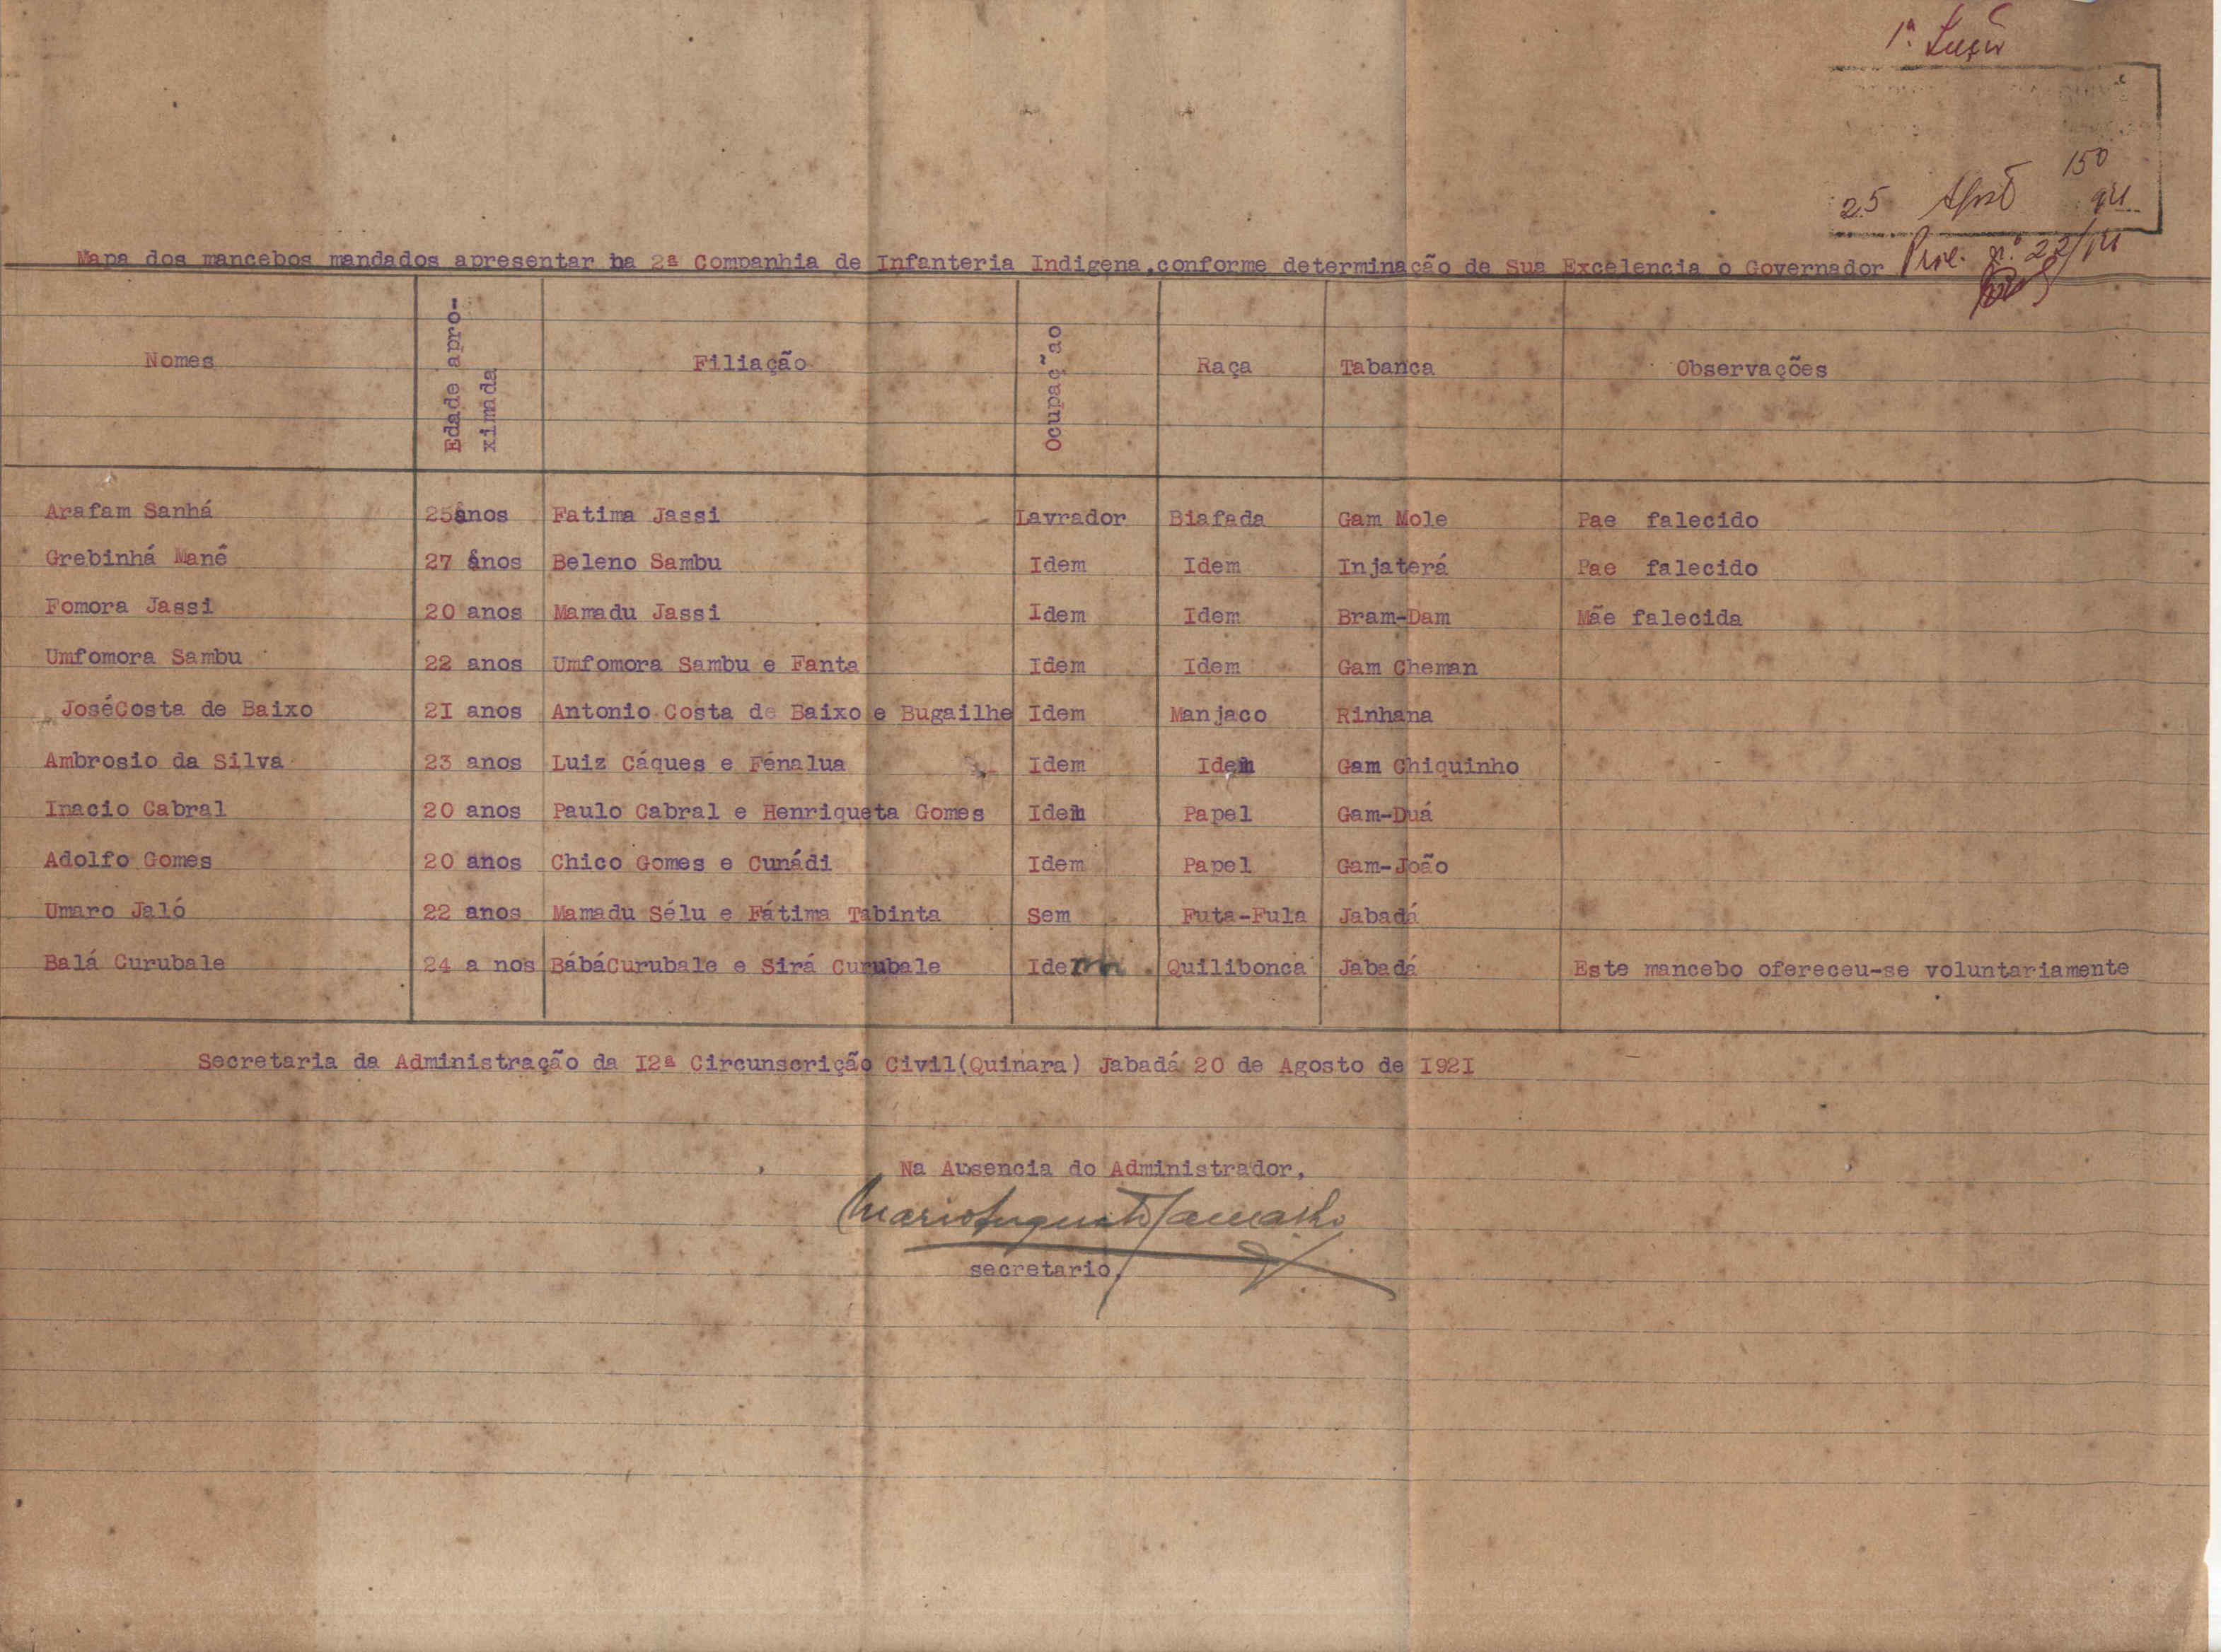 1ª
150
25 Agosto 921
Mapa dos mancebos mandados apresentar na 2ª Companhia de Infanteria Indigena,conforme determinação de Sua Excelencia o Governador Prov. nº 22/921
Nomes Edade apro-ximada Filiação Ocupaç~ao Raça Tabanca Observações
Arafam Sanhá 25anos Fatima Jassi Lavrador Biafada Gam Mole Pae falecido
Grebinhá Mané 27 anos Beleno Sambu Idem Idem Injaterá Pae falecido
Fomora Jassi 20 anos Mamadu Jassi Idem Idem Bram-Dam Mãe falecida
Umfomora Sambu 22 anos Umfomora Sambu e Fanta Idem Idem Gam Cheman
JoséCosta de Baixo 2I anos Antonio Costa de Baixo e Bugailhe Idem Manjaco Rinhana
Ambrosio da Silva 23 anos Luiz Cáques e Fénalua Idem Idem Gam Chiquinho
Inacio Cabral 20 anos Paulo Cabral e Henriqueta Gomes Idem Papel Gam-Duá
Adolfo Gomes 20 anos Chico Gomes e Cunádi Idem Papel Gam-João
Umaro Jaló 22 anos Mamadu Sélu e Fátima Tabinta Sem Futa-Fula Jabadá
Balá Curubale 24 a nos BábáCurubale e Sirá Curubale Idem Quilibonca Jabadá Este mancebo ofereceu-se voluntariamente
Secretaria da Administração da I2ª Circunscrição Civil(Quinara) Jabadá 20 de Agosto de I92I
Na Ausencia do Administrador,
Mario Augusto Camacho
secretario,